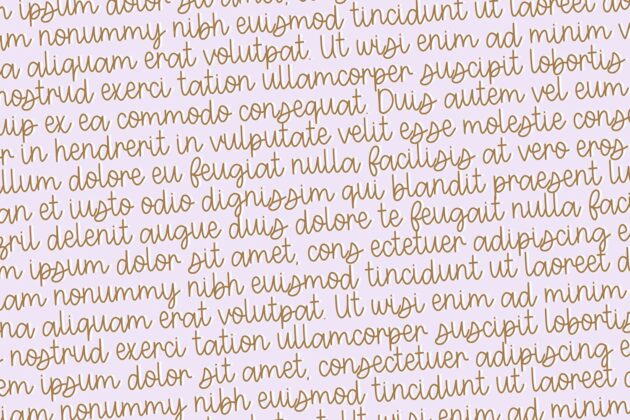 ipsum dolor sit amet, consectetuer adipiscing
am nonummy nibh euismod tincidunt ut laoreet do
a aliquam erat volutpat. Ut wisi enim ad minim v
nostrud exerci tation ullamcorper suscipit lobortis
uip ex ea commodo consequat. Duis autem vel eum
r in hendrerit in vulputate velit esse molestie cons
illum dolore eu feugiat nulla facilisis at vero eros
an et iusto odio dignissim qui blandit praesent lu
zril delenit augue duis dolore te feugait nulla faci
m ipsum dolor sit amet, cons ectetuer adipiscing e
am nonummy nibh euismod tincidunt ut laoreet d
na aliquam erat volutpat. Ut wisi enim ad minim
nostrud exerci tation ullamcorper suscipit lobortis
em ipsum dolor sit amet, consectetuer adipiscing e
am nonummy nibh euismod tincidunt ut laoreet
aliquam erat volutpat. Ut wisi enim ad minim